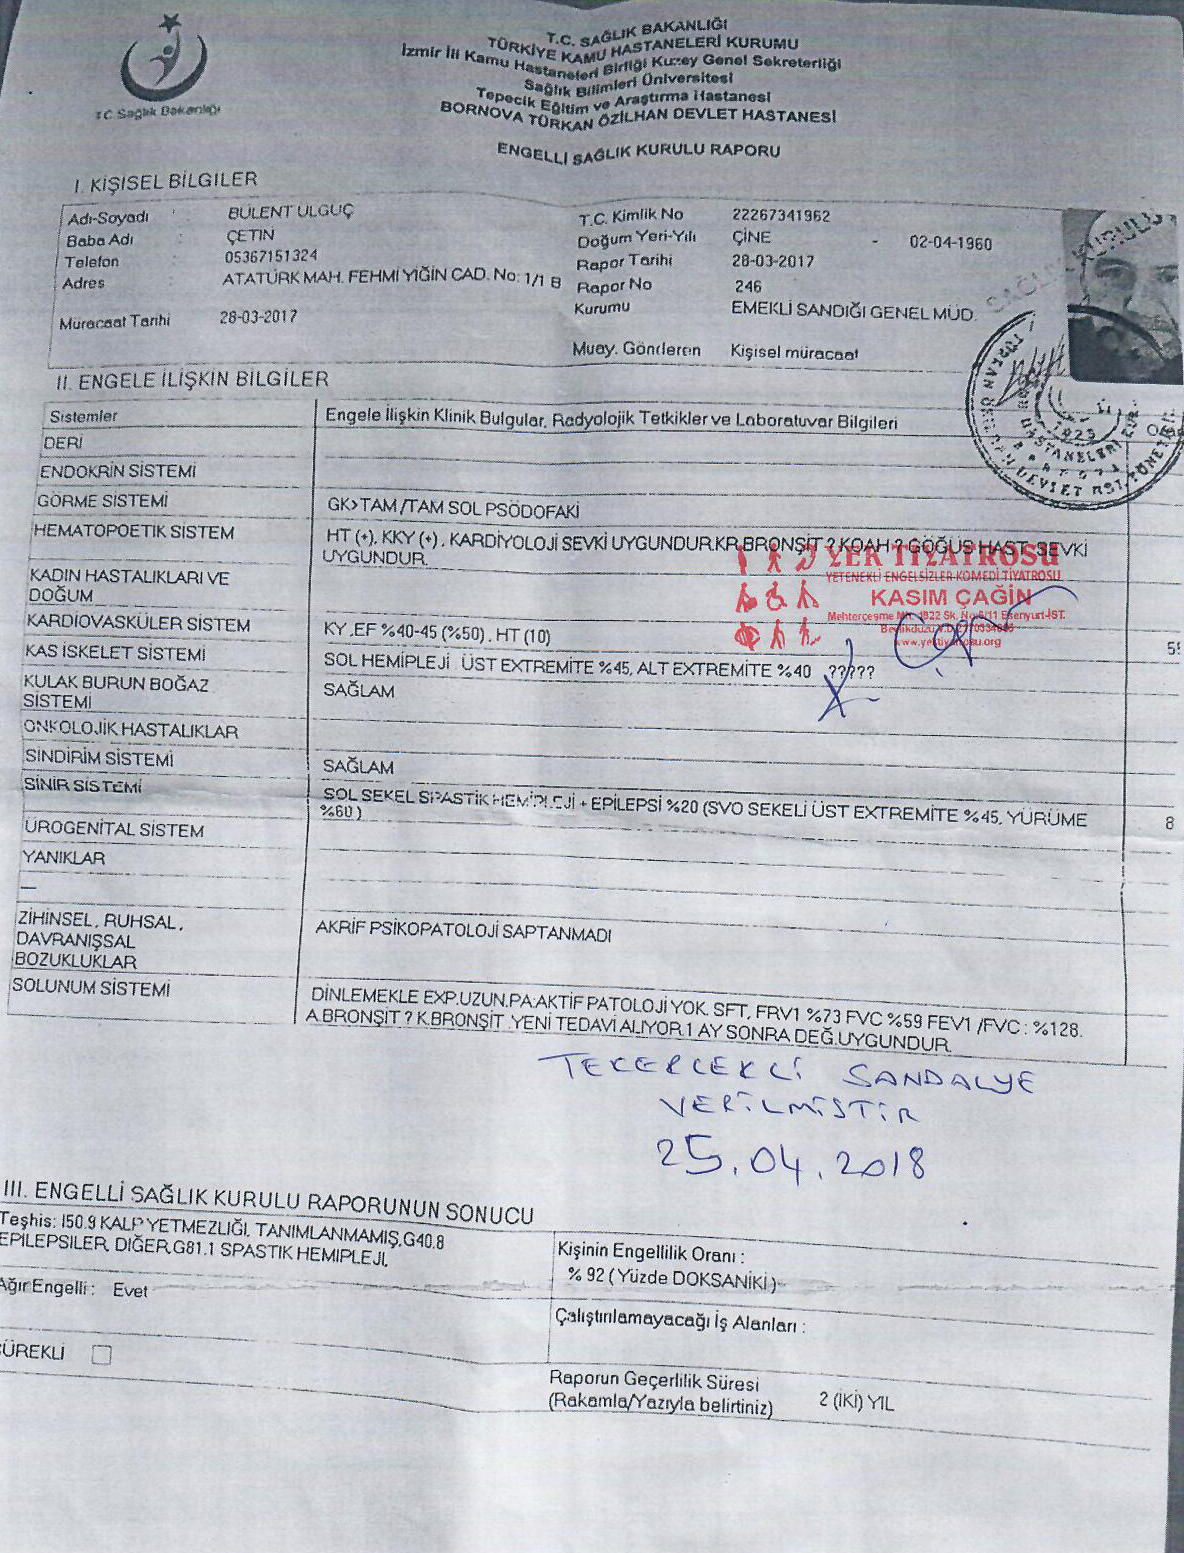 T.C. SAĞLIK BAKANLIĞI
TÜRKİYE KAMU HASTANELERİ KURUMU
İzmir İli Kamu Hastaneleri Birliği Kuzey Genel Sekreterliği
Sağlık Bilimleri Üniversitesi
Tepecik Eğitim ve Araştırma Hastanesi
BORNOVA TÜRKAN ÖZİLHAN DEVLET HASTANESİ
T.C. Sağlık Bakanlığı
ENGELLİ SAĞLIK KURULU RAPORU
I. KİŞİSEL BİLGİLER
Adı-Soyadı : BÜLENT ULGUÇ
Baba Adı : ÇETİN
Telefon : 05367151324
Adres : ATATÜRK MAH. FEHMİ YİĞİN CAD. No: 1/1 B
Müracaat Tarihi 28-03-2017
T.C. Kimlik No 22267341962
Doğum Yeri-Yılı ÇİNE - 02-04-1960
Rapor Tarihi 28-03-2017
Rapor No 246
Kurumu EMEKLİ SANDIĞI GENEL MÜD.
Muay. Gönderen Kişisel müracaat
SAĞLIK KURULU
1925
II. ENGELE İLİŞKİN BİLGİLER
Sistemler Engele İlişkin Klinik Bulgular, Radyolojik Tetkikler ve Laboratuvar Bilgileri
DERİ
ENDOKRİN SİSTEMİ
GÖRME SİSTEMİ GK>TAM /TAM SOL PSÖDOFAKİ
HEMATOPOETİK SİSTEM HT (+), KKY (+) , KARDİYOLOJİ SEVKİ UYGUNDUR.KR.BRONŞİT ? KOAH ? GÖĞÜS HAST. SEVKİ
UYGUNDUR.
YER TİYATROSU
YETENEKLİ ENGELSİZLER KOMEDİ TİYATROSU
KASIM ÇAĞİN
Mehterçeşme Mh. 1922 Sk. No:6/11 Esenyurt-İST.
www.yertiyatrosu.org
KADIN HASTALIKLARI VE
DOĞUM
KARDİOVASKÜLER SİSTEM KY ,EF %40-45 (%50) , HT (10)
KAS İSKELET SİSTEMİ SOL HEMİPLEJİ ÜST EXTREMİTE %45, ALT EXTREMİTE %40 ?????
KULAK BURUN BOĞAZ
SİSTEMİ SAĞLAM
ONKOLOJİK HASTALIKLAR
SİNDİRİM SİSTEMİ SAĞLAM
SİNİR SİSTEMİ SOL SEKEL SPASTİK HEMİPLEJİ + EPİLEPSİ %20 (SVO SEKELİ ÜST EXTREMİTE %45, YÜRÜME
%60 ) 8
ÜROGENİTAL SİSTEM
YANIKLAR
—
ZİHİNSEL, RUHSAL,
DAVRANIŞSAL
BOZUKLUKLAR
AKRİF PSİKOPATOLOJİ SAPTANMADI
SOLUNUM SİSTEMİ DİNLEMEKLE EXP.UZUN.PA:AKTİF PATOLOJİ YOK. SFT, FRV1 %73 FVC %59 FEV1 /FVC : %128.
A.BRONŞİT ? K.BRONŞİT .YENİ TEDAVİ ALIYOR.1 AY SONRA DEĞ.UYGUNDUR.
TEKERLEKLİ SANDALYE
VERİLMİŞTİR
25.04.2018
III. ENGELLİ SAĞLIK KURULU RAPORUNUN SONUCU
Teşhis: I50.9 KALP YETMEZLİĞİ, TANIMLANMAMIŞ,G40.8
EPİLEPSİLER, DİĞER,G81.1 SPASTİK HEMİPLEJİ,
Kişinin Engellilik Oranı :
% 92 ( Yüzde DOKSANİKİ )
Ağır Engelli : Evet
Çalıştırılamayacağı İş Alanları :
SÜREKLİ
Raporun Geçerlilik Süresi
(Rakamla/Yazıyla belirtiniz) 2 (İKİ) YIL